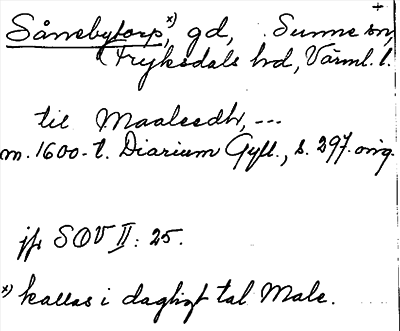 +
Sånebytorp,*) gd, Sunne sn,
Fryksdals hd, Värml. l.
til Maaleedh, ---
m. 1600-t. Diarium Gyll., s. 297. orig.
jfr SOV II: 25.
*) kallas i dagligt tal Male.